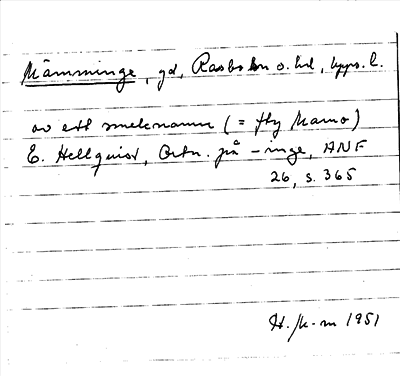 Mämminge, gd, Rasbo sn o. hd, Upps. l.
av ett smeknamn (= fty Mamo)
E. Hellquist, Ortn. på -inge, ANF
26, s. 365
H. K-m 1951